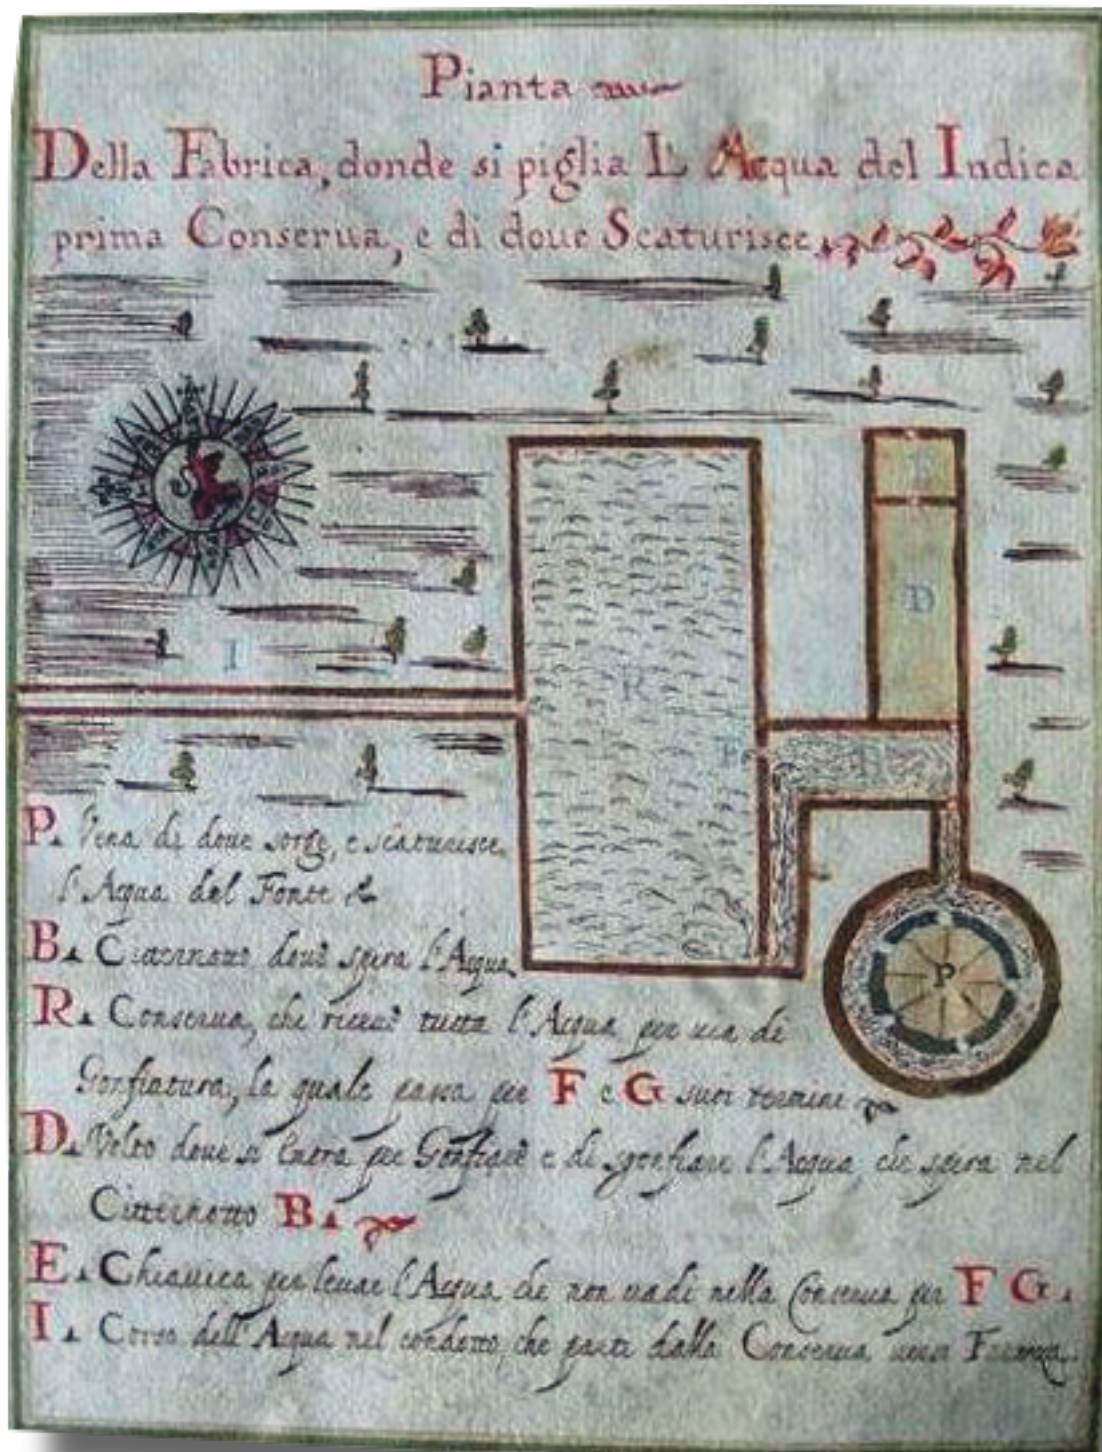 Pianta
Della Fabrica, donde si piglia L'Acqua del Indica
prima Conserua, e di doue Scaturisce
E
D
I
R
F
B
P
P. Vena di doue sorge, e scaturisce
l'Acqua del Fonte
B. Citternotto doue spera l'Acqua
R. Conserua, che riceue tutta l'Acqua per uia di
Gonfiatura, la quale passa per F e G suoi termine
D. Volto doue si entra per Gonfiare e di sgonfiare l'Acqua, che spera nel
Citternotto B.
E. Chiauica per leuare l'Acqua che non uadi nella Conserua per F G.
I. Corso dell'Acqua nel condotto, che parte dalla Conserua uerso Faenza.